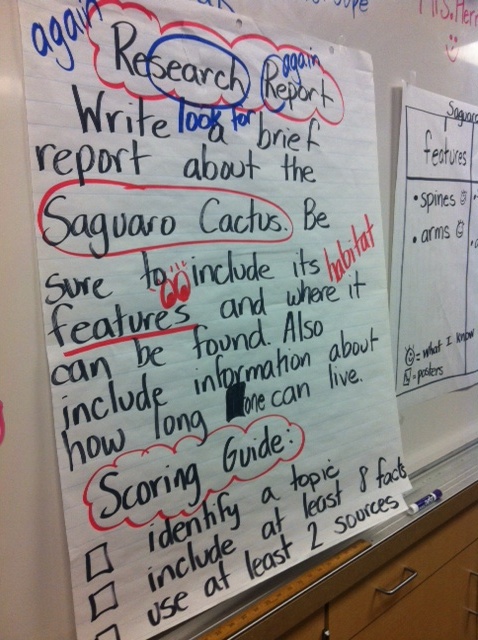 again
Research Report
again
look for
Write a brief
report about the
Saguaro Cactus. Be
sure to include its habitat
features and where it
can be found. Also
include information about
how long one can live.
Scoring Guide:
identify a topic
include at least 8 facts
use at least 2 sources
features
• spines
• arms
= what I know
= posters